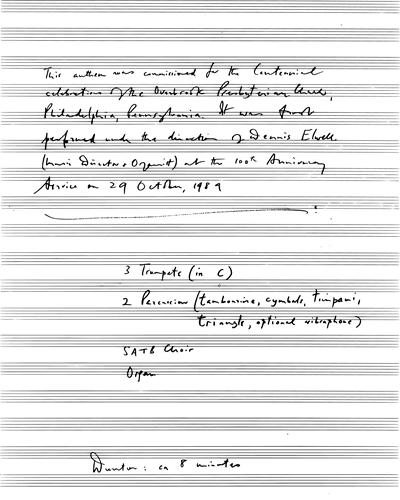 This anthem was commissioned for the Centennial
celebration of the Overbrook Presbyterian Church,
Philadelphia, Pennsylvania. It was first
performed under the direction of Dennis Elwell
(Music Director & Organist) at the 100th Anniversary
Service on 29 October, 1989
3 Trumpets (in C)
2 Percussion (tambourine, cymbals, timpani,
triangle, optional vibraphone)
SATB Choir
Organ
Duration: ca 8 minutes